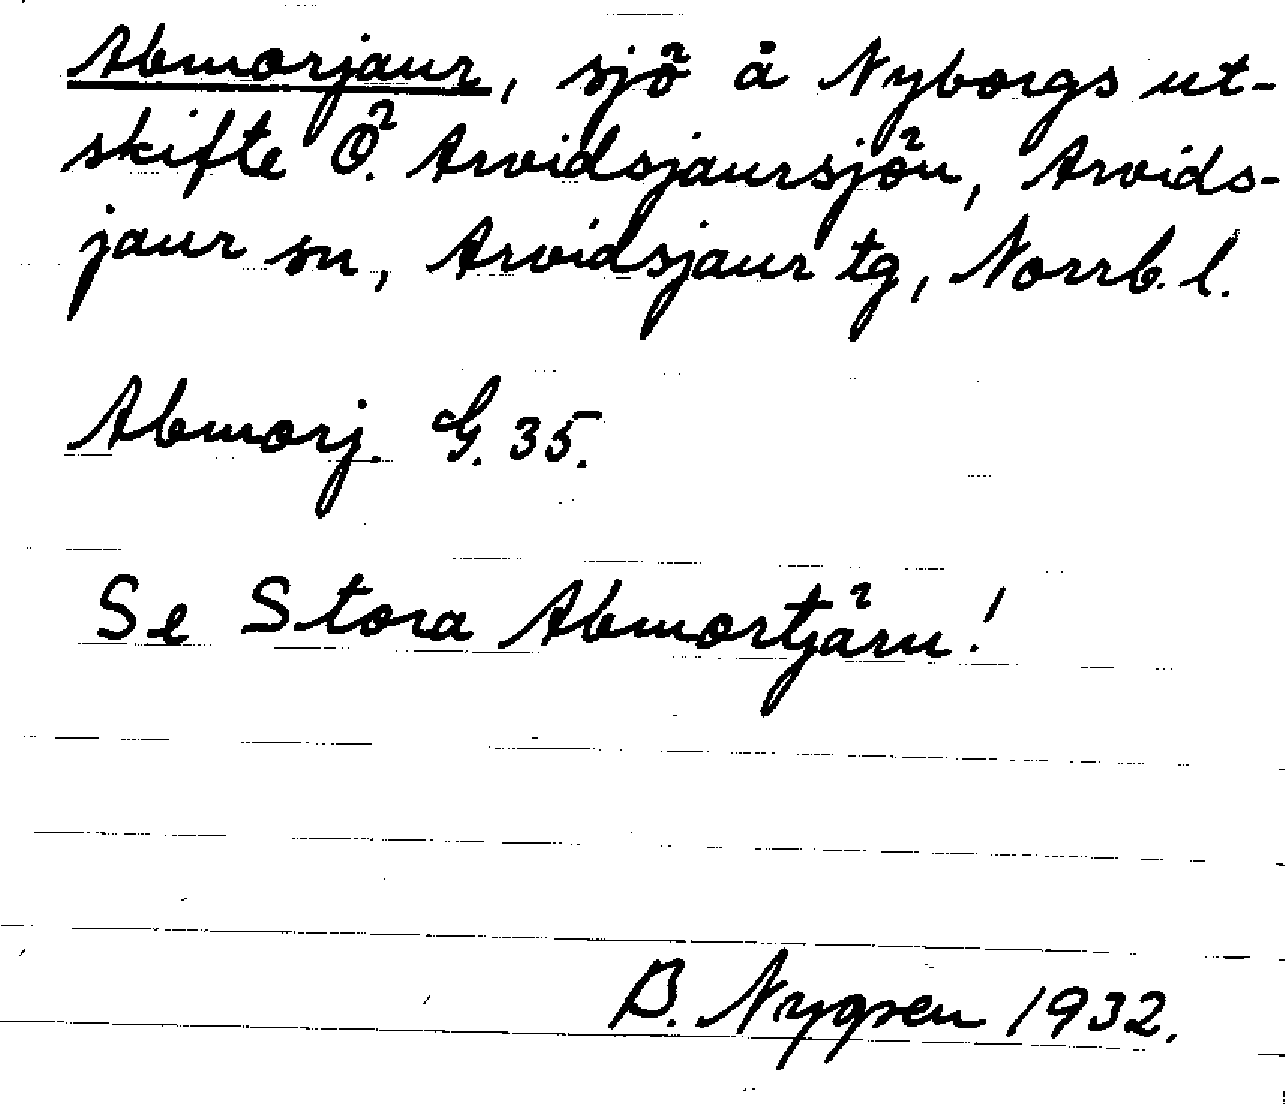 Abmorjaur, sjö å Nyborgs ut-
skifte Ö. Arvidsjaursjön, Arvids-
jaur sn, Arvidsjaur tg, Norrb. l.
Abmorj. G. 35.
Se Stora Abmortjärn!
B. Nygren 1932.